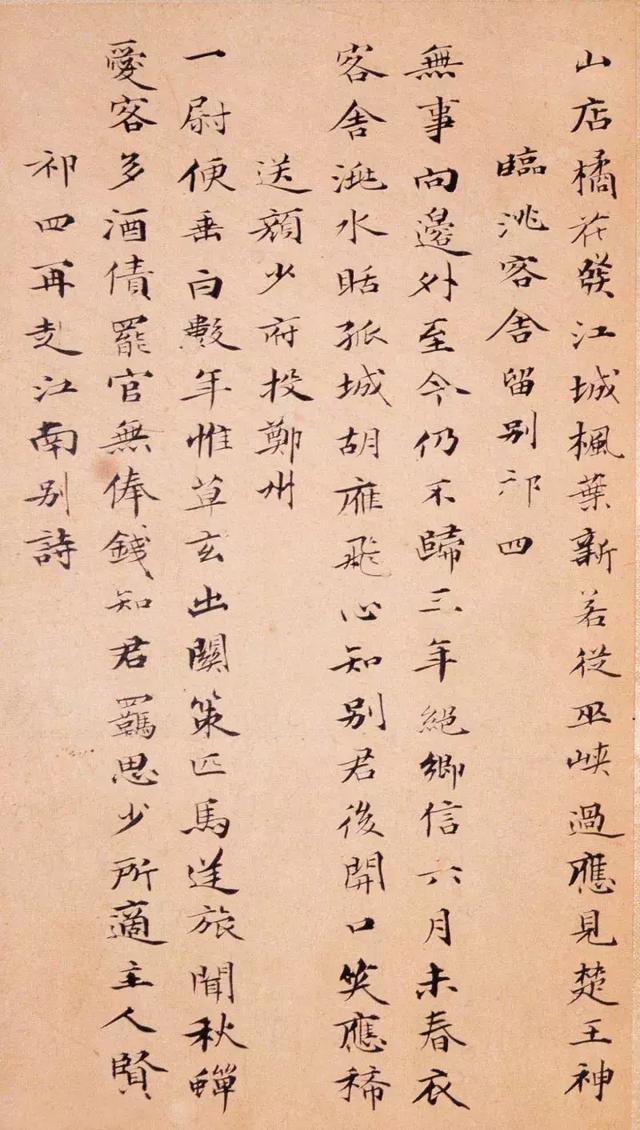 山店橘花發江城楓葉新若從巫峽過應見楚王神
臨洮客舍留別祁四
無事向邊外至今仍不歸三年絕鄉信六月未春衣
客舍洮水聒孤城胡雁飛心知別君後開口笑應稀
送顏少府投鄭州
一尉便垂白數年惟草玄出關策匹馬逆旅聞秋蟬
愛客多酒債罷官無俸錢知君羈思少所適主人賢
祁四再赴江南別詩